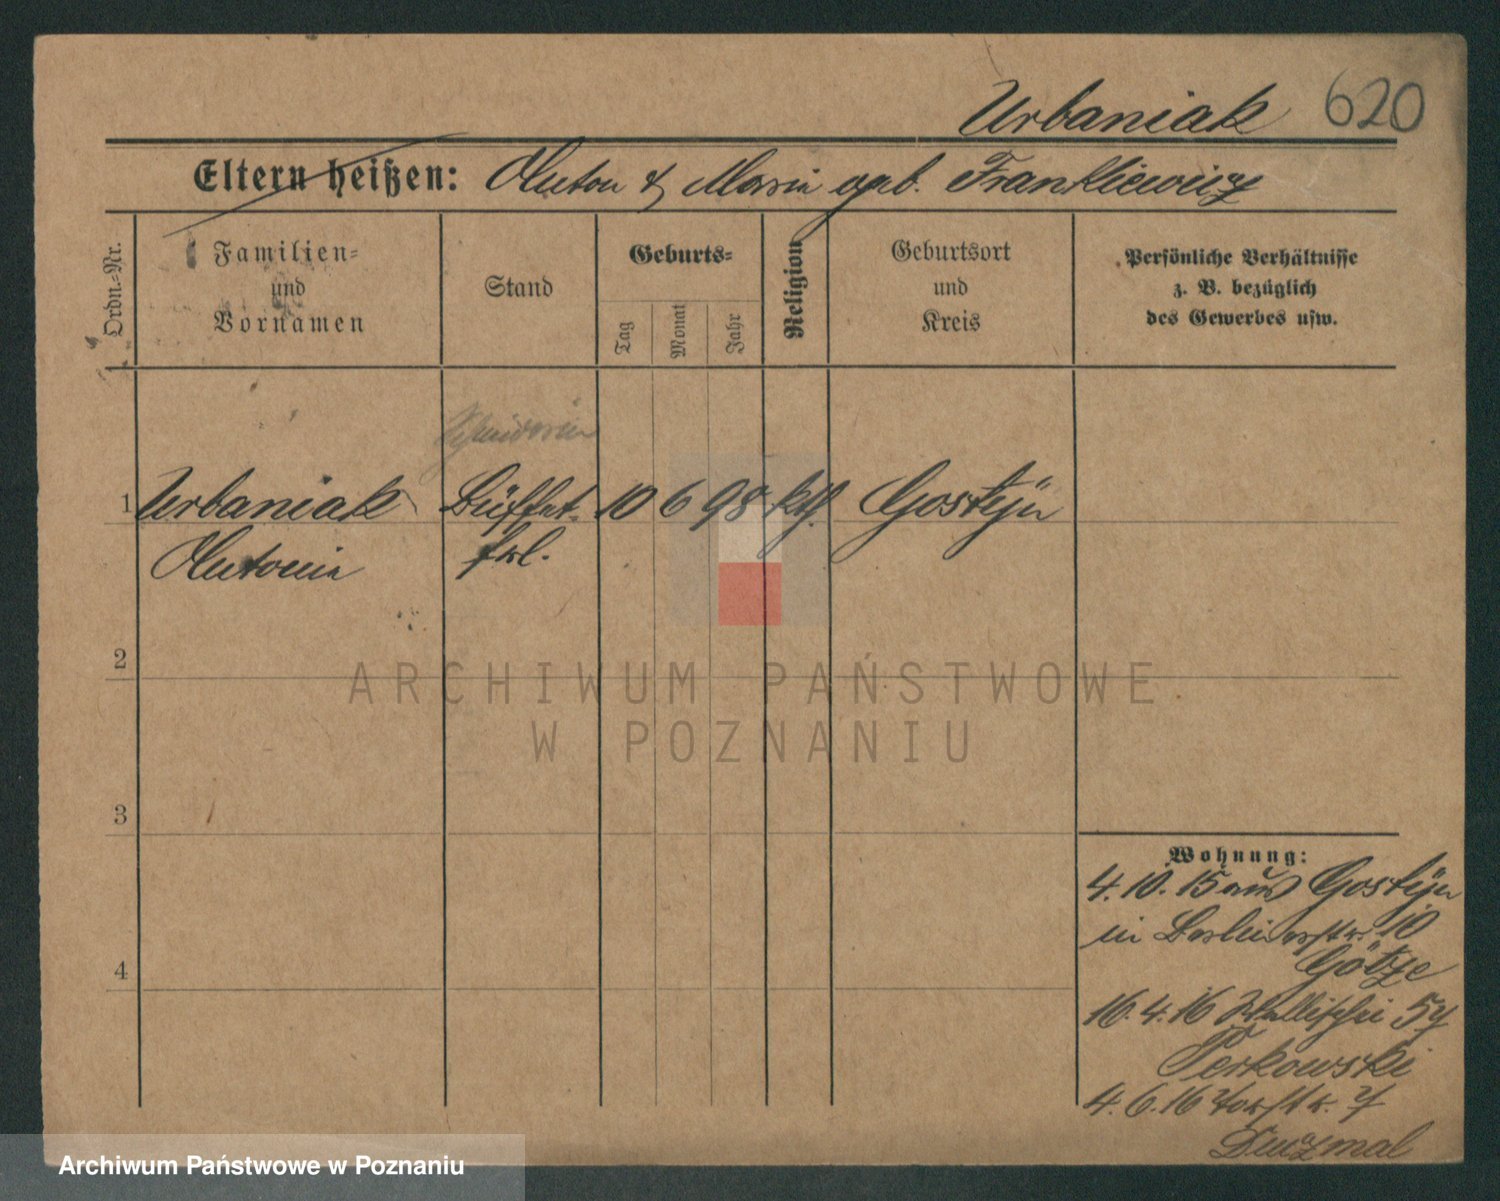 Urbaniak 620
Eltern heißen: Anton & Maria geb. Frankiewicz
Ordn.-Nr.
Familien-
und
Vornamen
Stand
Geburts-
Tag
Monat
Jahr
Religion
Geburtsort
und
Kreis
Persönliche Verhältnisse
z. B. bezüglich
des Gewerbes usw.
1 Urbaniak Büffet- 10 6 98 kth. Gostyn
Antonia frl.
2
3
4
Wohnung:
4.10.15 aus Gostyn
in Berlinerstr. 10
Götze
16.4.16 Wallischei 57
Perkowski
4.6.16 Torstr. 7
ARCHIWUM PAŃSTWOWE
W POZNANIU
Archiwum Państwowe w Poznaniu